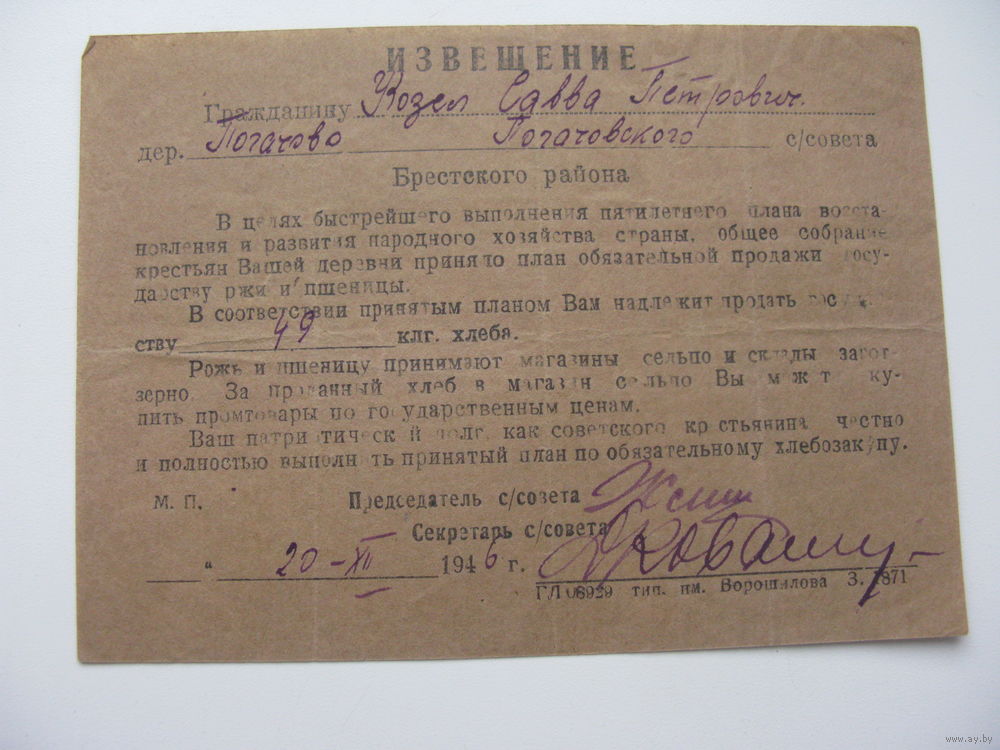 ИЗВЕЩЕНИЕ
Гражданину Козел Савва Петрович.
дер. Погачово Погачовского с/совета
Брестского района
В целях быстрейшего выполнения пятилетнего плана восста-
новления и развития народного хозяйства страны, общее собрание
крестьян Вашей деревни приняло план обязательной продажи госу-
дарству ржи и пшеницы.
В соответствии принятым планом Вам надлежит продать госуда
ству 49 клг. хлеба.
Рожь и пшеницу принимают магазины сельпо и склады загот-
зерно. За проданный хлеб в магазин сельпо Вы может ку-
пить промтовары по государственным ценам.
Ваш патриотический долг, как советского крестьянина честно
и полностью выполнить принятый план по обязательному хлебозакупу.
М. П. Председатель с/совета
Секретарь с/совета
" 20-XII 1946 г.
ГЛ 08929 тип. им. Ворошилова З. 7871
www.ay.by